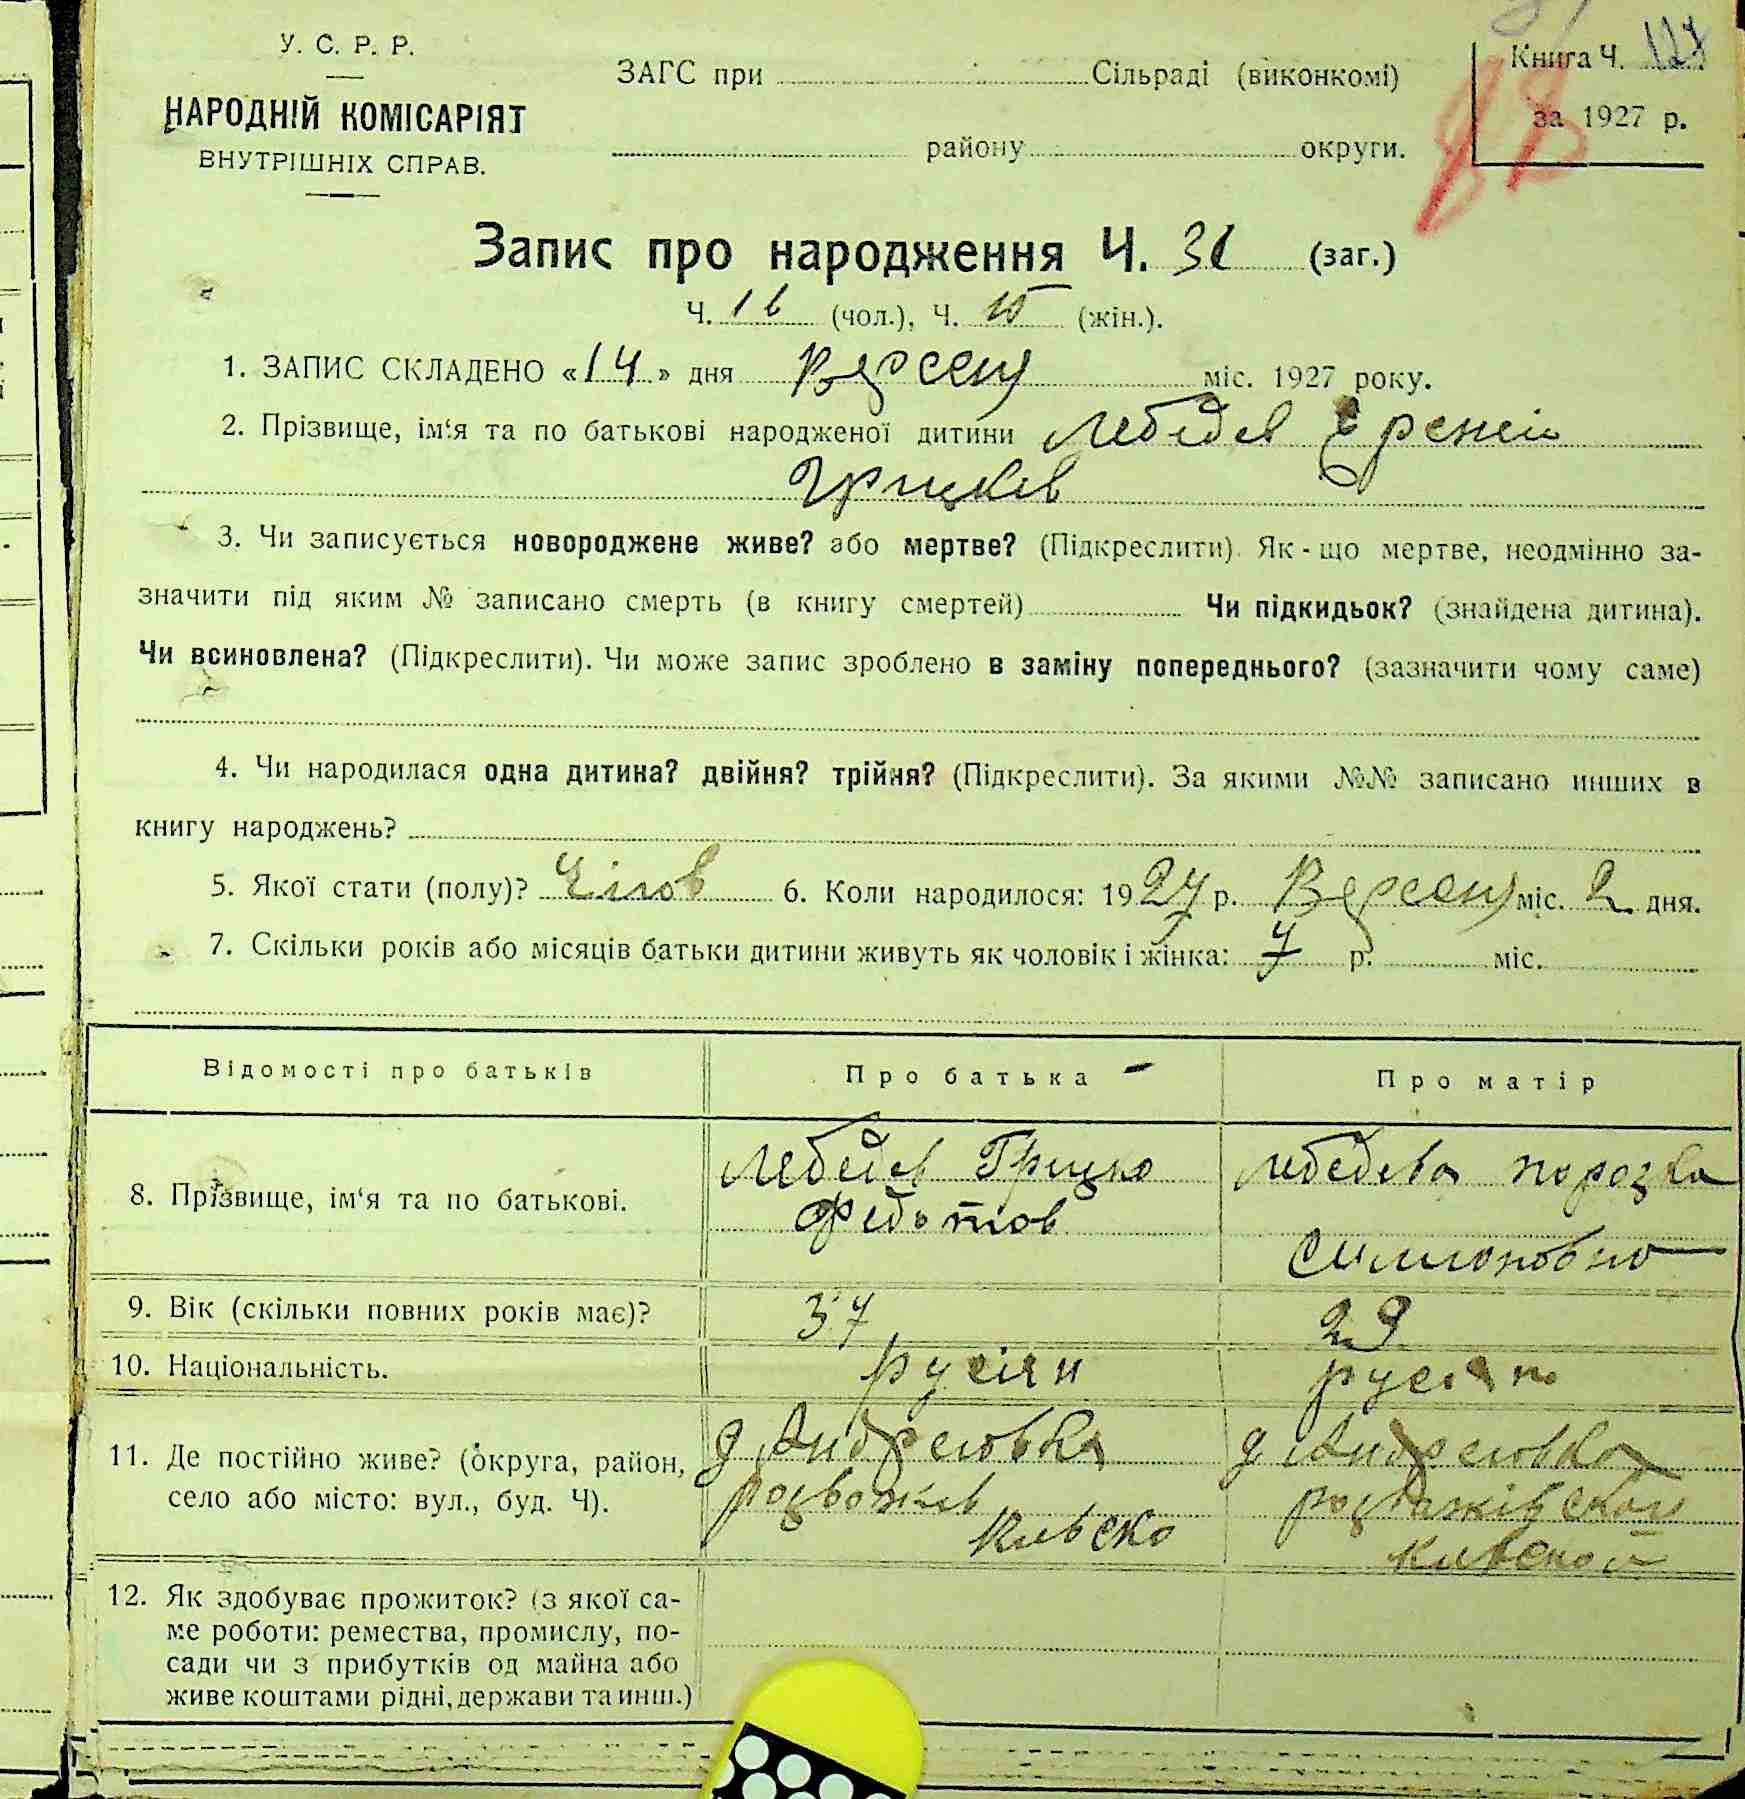 У. С. Р. Р.
НАРОДНІЙ КОМІСАРІЯТ
ВНУТРІШНІХ СПРАВ.
ЗАГС при Сільраді (виконкомі)
району округи.
Книга Ч. 127
за 1927 р.
Запис про народження Ч. 31 (заг.)
Ч. 16 (чол.), Ч. 15 (жін.).
1. ЗАПИС СКЛАДЕНО «14» дня Вересня міс. 1927 року.
2. Прізвище, ім‘я та по батькові народженої дитини Лебедев
Грицків
3. Чи записується новороджене живе? або мертве? (Підкреслити). Як-що мертве, неодмінно за-
значити під яким № записано смерть (в книгу смертей) Чи підкидьок? (знайдена дитина).
Чи всиновлена? (Підкреслити). Чи може запис зроблено в заміну попереднього? (зазначити чому саме)
4. Чи народилася одна дитина? двійня? трійня? (Підкреслити). За якими №№ записано инших в
книгу народжень?
5. Якої стати (полу)? Чілов 6. Коли народилося: 1927 р. Вересня міс. 2 дня.
7. Скільки років або місяців батьки дитини живуть як чоловік і жінка: 7 р. міс.
Відомості про батьків
Про батька
Про матір
8. Прізвище, ім‘я та по батькові.
Лебедев Грицко
Федотов
Лебедева
Симоновно
9. Вік (скільки повних років має)?
37
29
10. Національність.
русіян
русіян
11. Де постійно живе? (округа, район,
село або місто: вул., буд. Ч).
д Андреювка
розважів
Киевско
д Андреювка
розважівской
Киевской
12. Як здобуває прожиток? (з якої са-
ме роботи: ремества, промислу, по-
сади чи з прибутків од майна або
живе коштами рідні, держави та инш.)